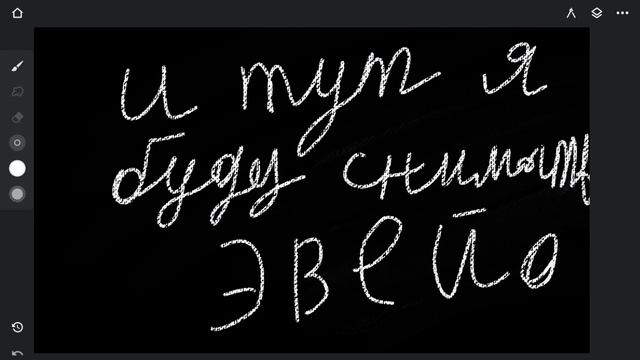 и тут я
буду снимать
эвейо